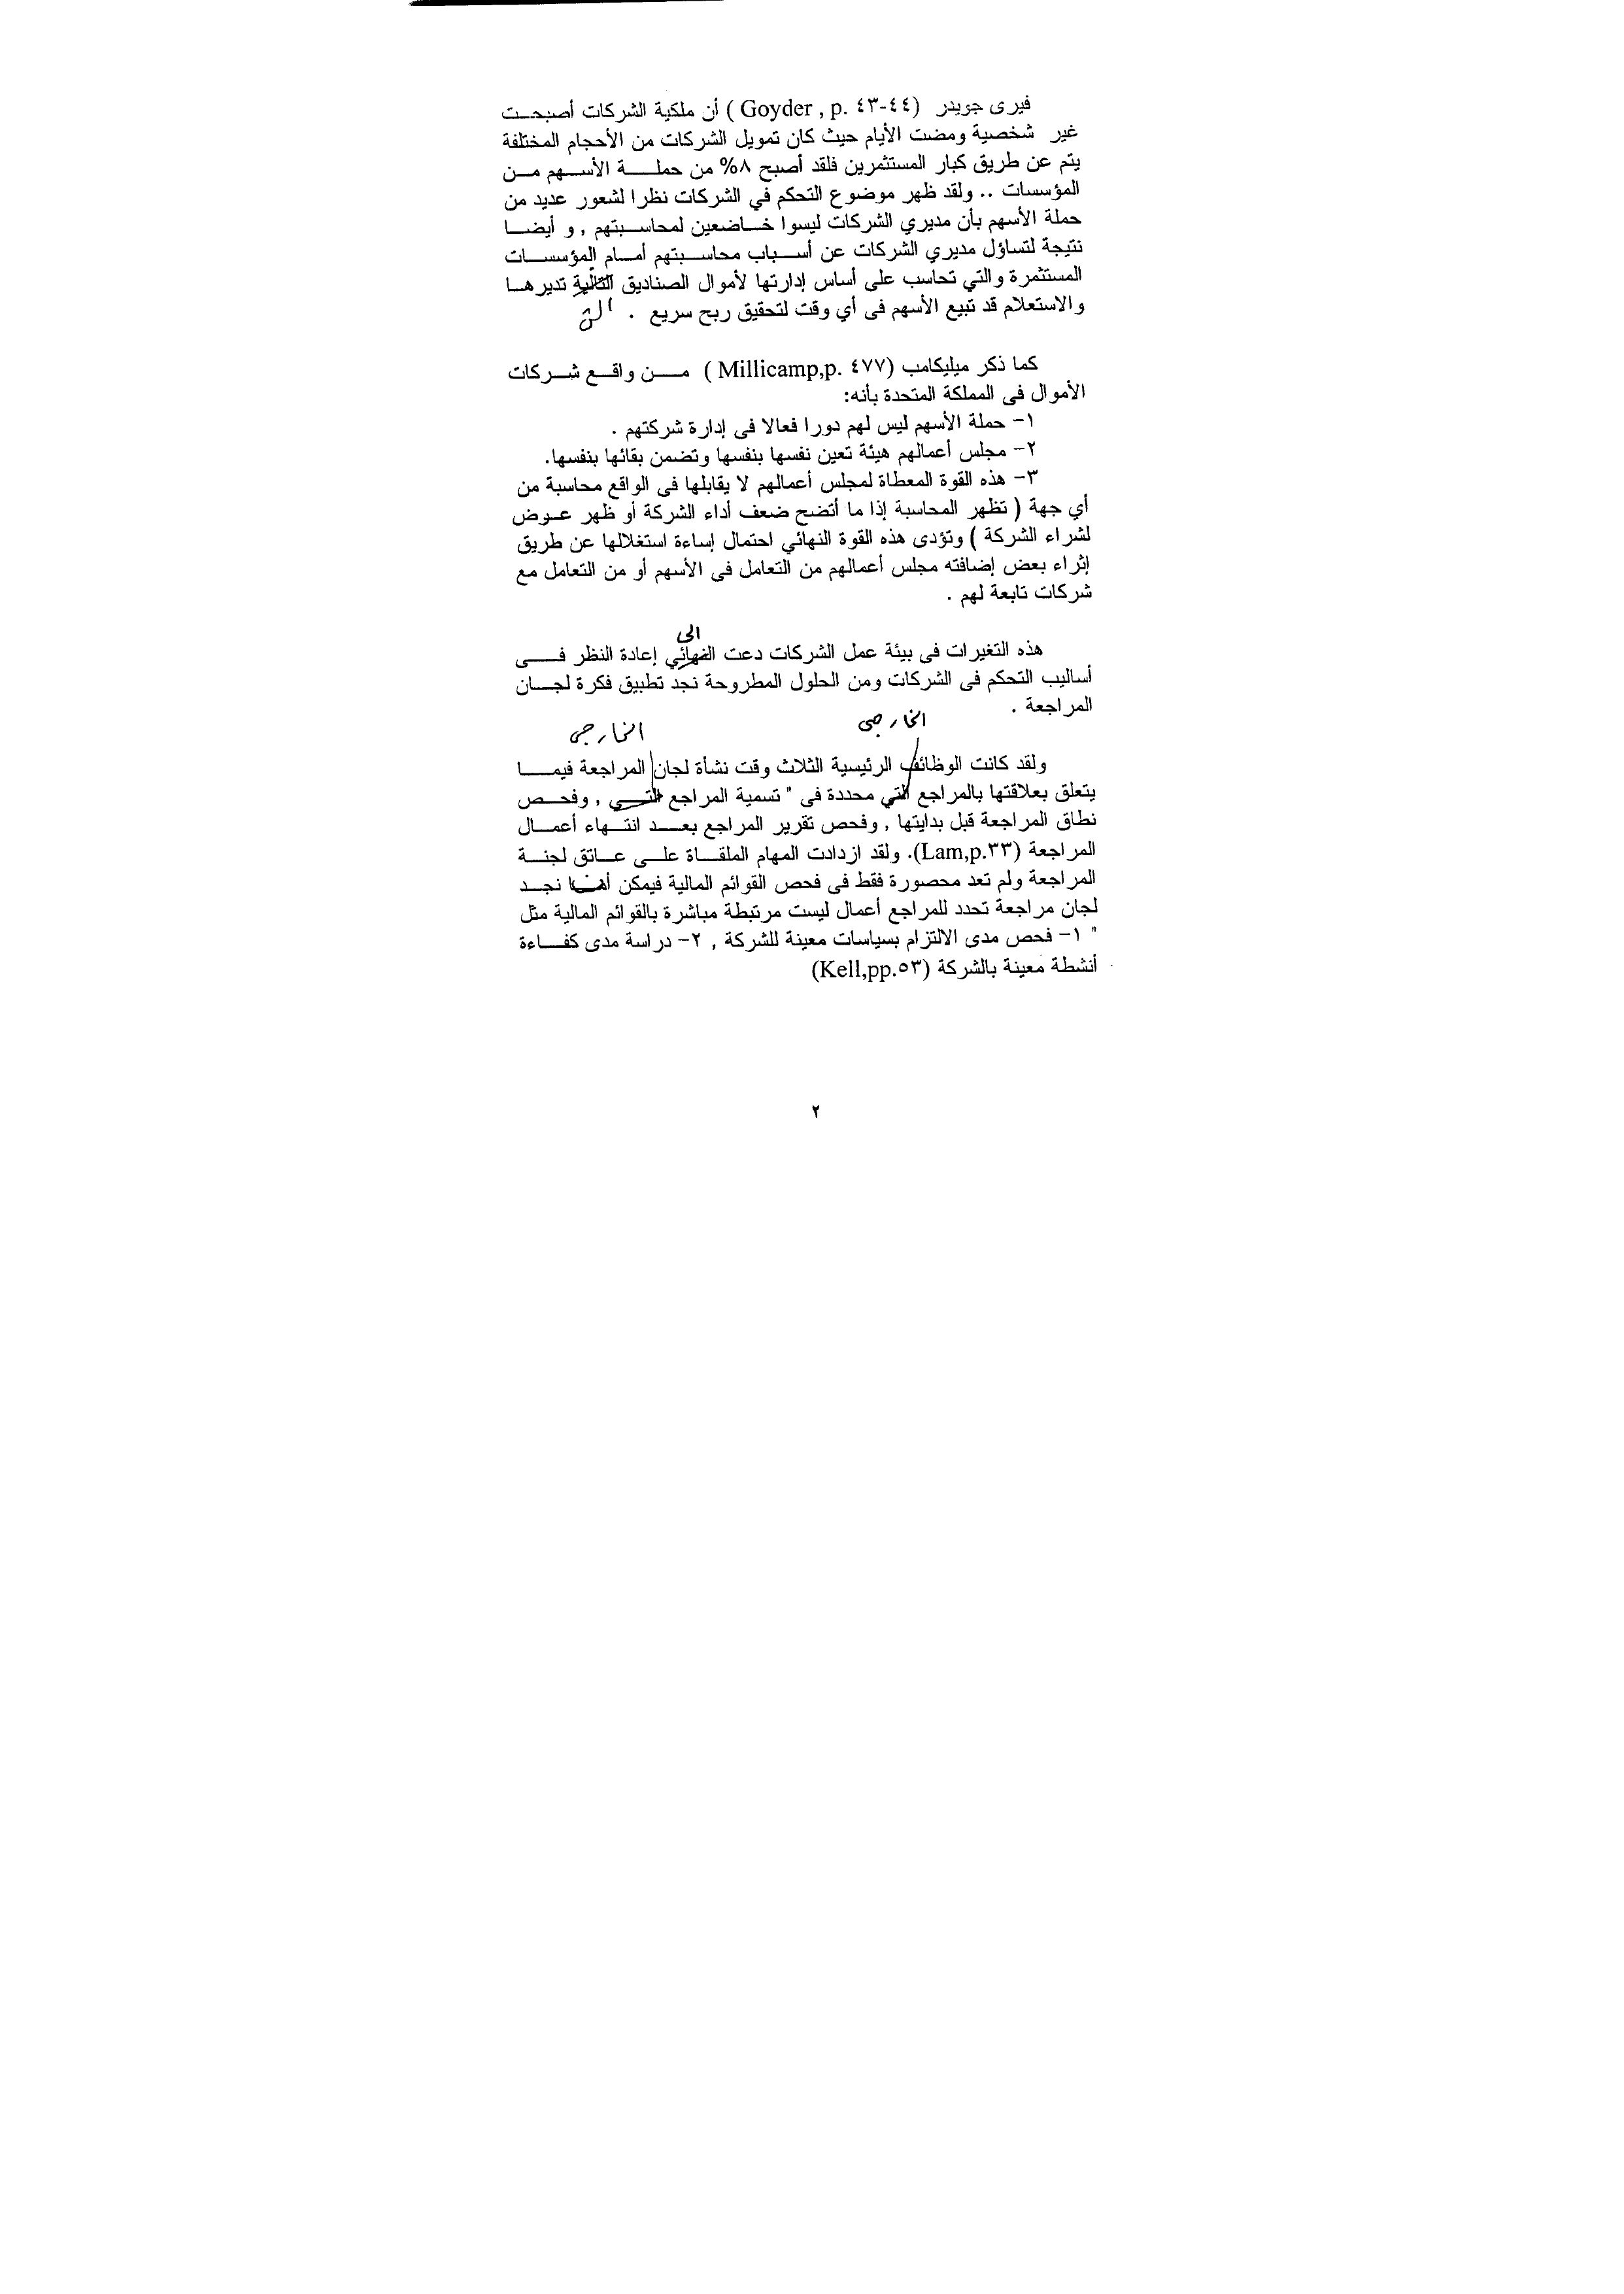 فيرى جويدر (Goyder , p. ٤٣-٤٤ ) أن ملكية الشركات أصبحت
غير شخصية ومضت الأيام حيث كان تمويل الشركات من الأحجام المختلفة
يتم عن طريق كبار المستثمرين فلقد أصبح ٨% من حملة الأسهم من
المؤسسات .. ولقد ظهر موضوع التحكم في الشركات نظرا لشعور عديد من
حملة الأسهم بأن مديري الشركات ليسوا خاضعين لمحاسبتهم , و أيضا
نتيجة لتساؤل مديري الشركات عن أسباب محاسبتهم أمام المؤسسات
المستثمرة والتي تحاسب على أساس إدارتها لأموال الصناديق التالية تديرها
والاستعلام قد تبيع الأسهم فى أي وقت لتحقيق ربح سريع . التى
كما ذكر ميليكامب (Millicamp,p. ٤٧٧ ) من واقع شركات
الأموال فى المملكة المتحدة بأنه:
١- حملة الأسهم ليس لهم دورا فعالا فى إدارة شركتهم .
٢- مجلس أعمالهم هيئة تعين نفسها بنفسها وتضمن بقائها بنفسها.
٣- هذه القوة المعطاة لمجلس أعمالهم لا يقابلها فى الواقع محاسبة من
أي جهة ( تظهر المحاسبة إذا ما أتضح ضعف أداء الشركة أو ظهر عوض
لشراء الشركة ) وتؤدى هذه القوة النهائي احتمال إساءة استغلالها عن طريق
إثراء بعض إضافته مجلس أعمالهم من التعامل فى الأسهم أو من التعامل مع
شركات تابعة لهم .
الى
هذه التغيرات فى بيئة عمل الشركات دعت النهائي إعادة النظر فى
أساليب التحكم فى الشركات ومن الحلول المطروحة نجد تطبيق فكرة لجان
المراجعة .
الخارجى الخارجى
ولقد كانت الوظائف الرئيسية الثلاث وقت نشأة لجان المراجعة فيما
يتعلق بعلاقتها بالمراجع التي محددة فى " تسمية المراجع التي , وفحص
نطاق المراجعة قبل بدايتها , وفحص تقرير المراجع بعد انتهاء أعمال
المراجعة (Lam,p.٣٣). ولقد ازدادت المهام الملقاة على عاتق لجنة
المراجعة ولم تعد محصورة فقط فى فحص القوائم المالية فيمكن نجد
لجان مراجعة تحدد للمراجع أعمال ليست مرتبطة مباشرة بالقوائم المالية مثل
" ١- فحص مدى الالتزام بسياسات معينة للشركة , ٢- دراسة مدى كفاءة
أنشطة معينة بالشركة (Kell,pp.٥٣)
٢